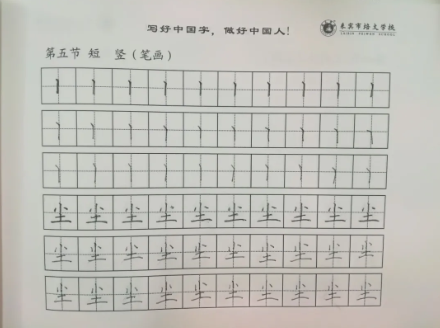 写好中国字，做好中国人!
来宾市培文学校
LAIBIN PEIWEN SCHOOL
第五节 短 竖（笔画）
丨 丨 丨 丨 丨 丨 丨 丨 丨 丨
丨 丨 丨 丨 丨 丨 丨 丨 丨 丨
丨 丨 丨 丨 丨 丨 丨 丨 丨 丨
尘 尘 尘 尘 尘 尘 尘 尘 尘 尘
尘 尘 尘 尘 尘 尘 尘 尘 尘 尘
尘 尘 尘 尘 尘 尘 尘 尘 尘 尘